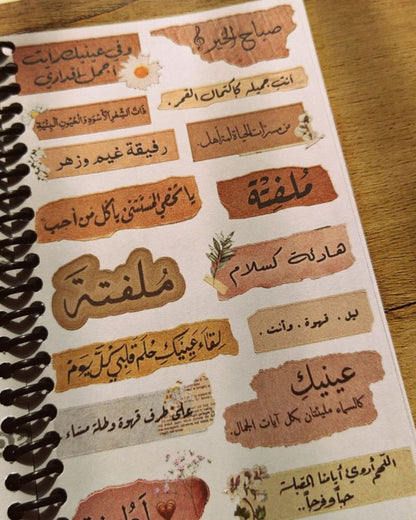 صباح الخير
وفي عينيك رأيت
أجمل أقداري
أنت جميله كاكتمال القمر.
ذات الشعر الأسود و العيون البنية
من مسرّات الحياة لمتأهل.
رفيقة غيم وزهر
مُلفتة
يا شخصي المستثنى يا كل من أحب
هادئة كسلام
مُلفتة
ليل. قهوة. وأنت.
لقاء عينيك حلم قلبي كلّ يوم
عينيكِ
كالسماء مليئتان بكل آيات الجمال.
على طرف قهوة وطلة مساء
اللهم أروي أيامنا القبلة
حباً وفرحاً..